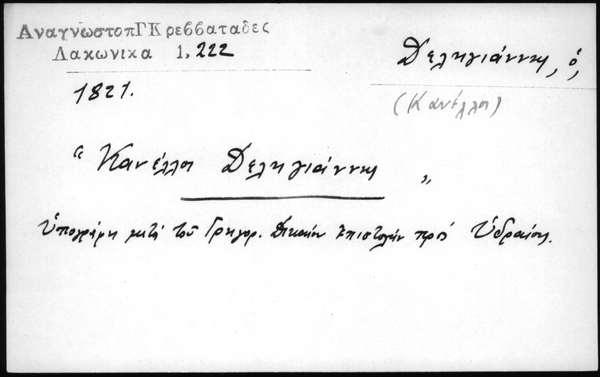 ΑναγνωστοπΓΚρεββαταδες
Λακωνικα 1, 222
Δεληγιάννης, ὁ,
(Κανέλλος)
1821.
"Κανέλλος Δεληγιάννης"
Ὑπογράφει μετὰ τοῦ Γρηγορ. Δικαίου ἐπιστολὴν πρὸς Ὑδραίους.